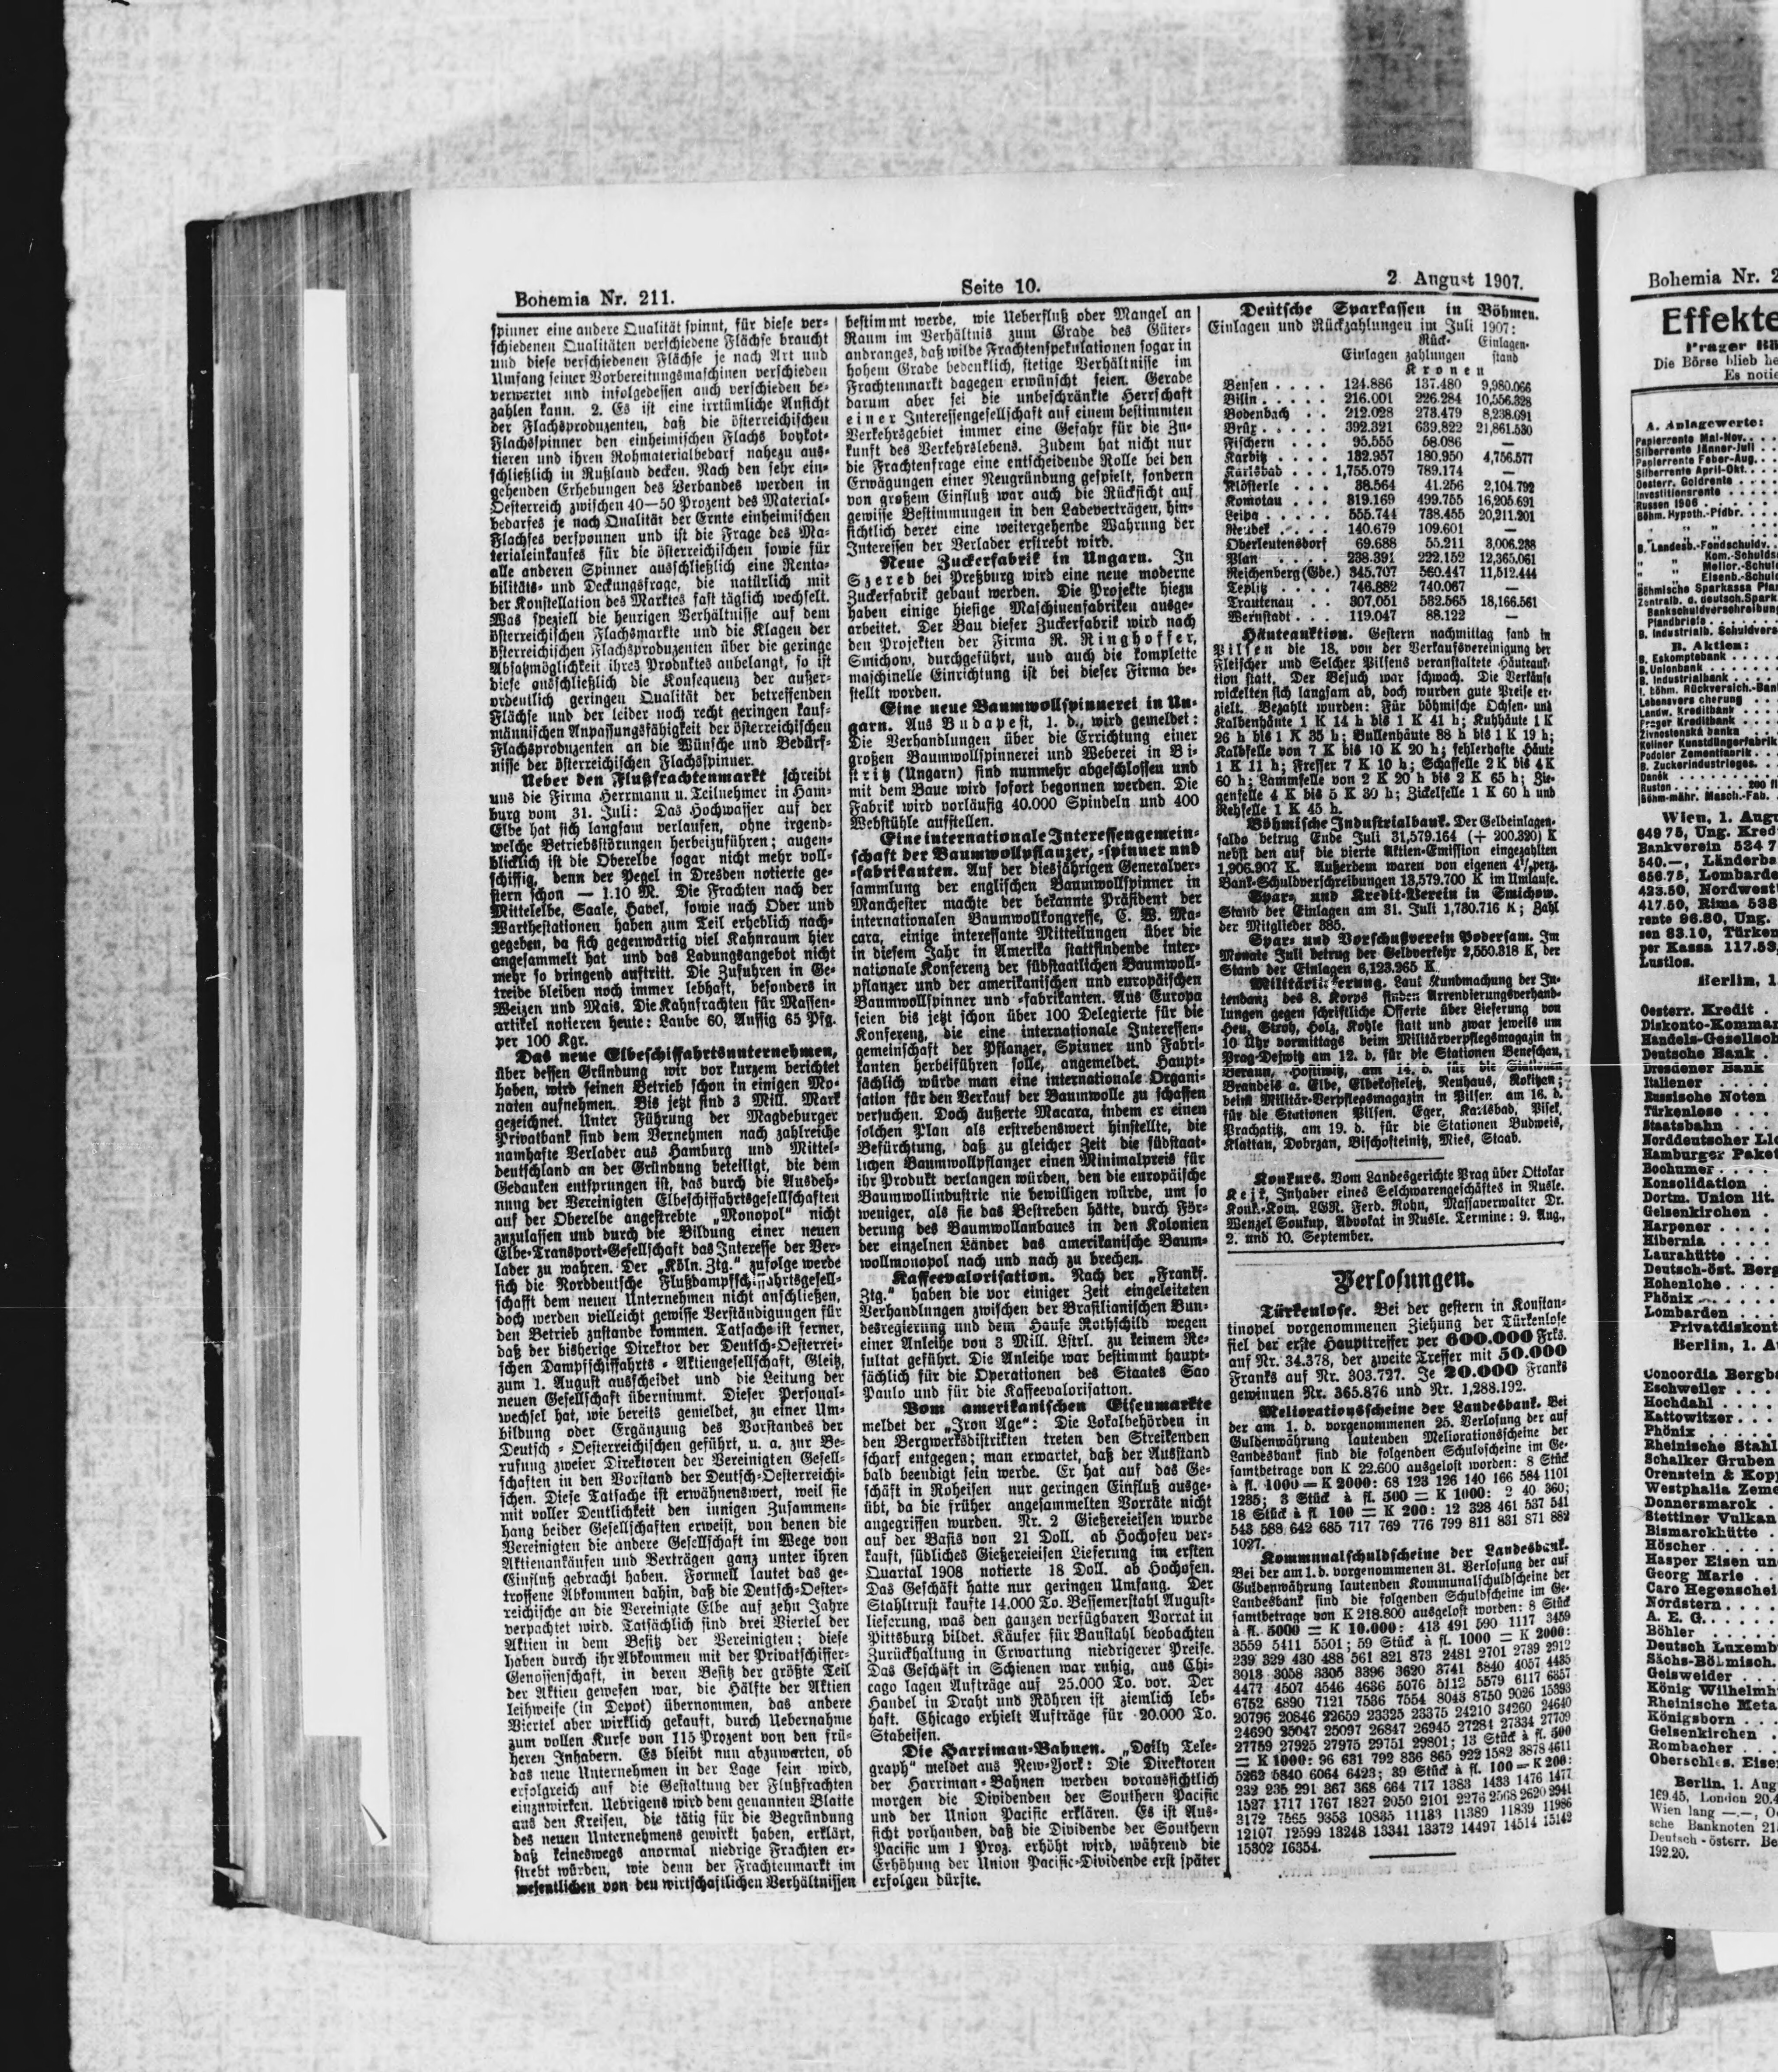 Bohemia Nr. 211.
Seite 10.
2. August 1907.
spinner eine andere Qualität spinnt, für diese ver-
schiedenen Qualitäten verschiedene Flächse braucht
und diese verschiedenen Flächse je nach Art und
Umfang seiner Vorbereitungsmaschinen verschieden
verwertet und infolgedessen auch verschieden be-
zahlen kann. 2. Es ist eine irrtümliche Ansicht
der Flachsproduzenten, daß die österreichischen
Flachsspinner den einheimischen Flachs boykot-
tieren und ihren Rohmaterialbedarf nahezu aus-
schließlich in Rußland decken. Nach den sehr ein-
gehenden Erhebungen des Verbandes werden in
Oesterreich zwischen 40—50 Prozent des Material-
bedarfes je nach Qualität der Ernte einheimischen
Flachses versponnen und ist die Frage des Ma-
terialeinkaufes für die österreichischen sowie für
alle anderen Spinner ausschließlich eine Renta-
bilitäts- und Deckungsfrage, die natürlich mit
der Konstellation des Marktes fast täglich wechselt.
Was speziell die heurigen Verhältnisse auf dem
österreichischen Flachsmarkte und die Klagen der
österreichischen Flachsproduzenten über die geringe
Absatzmöglichkeit ihres Produktes anbelangt, so ist
diese ausschließlich die Konsequenz der außer-
ordentlich geringen Qualität der betreffenden
Flächse und der leider noch recht geringen kauf-
männischen Anpassungsfähigkeit der österreichischen
Flachsproduzenten an die Wünsche und Bedürf-
nisse der österreichischen Flachsspinner.
Ueber den Flußfrachtenmarkt schreibt
uns die Firma Herrmann u. Teilnehmer in Ham-
burg vom 31. Juli: Das Hochwasser auf der
Elbe hat sich langsam verlaufen, ohne irgend-
welche Betriebsstörungen herbeizuführen; augen-
blicklich ist die Oberelbe sogar nicht mehr voll-
schiffig, denn der Pegel in Dresden notierte ge-
stern schon — 1.10 M. Die Frachten nach der
Mittelelbe, Saale, Havel, sowie nach Oder und
Warthestationen haben zum Teil erheblich nach-
gegeben, da sich gegenwärtig viel Kahnraum hier
angesammelt hat und das Ladungsangebot nicht
mehr so bringend auftritt. Die Zufuhren in Ge-
treide bleiben noch immer lebhaft, besonders in
Weizen und Mais. Die Kahnfrachten für Massen-
artikel notieren heute: Laube 60, Aussig 65 Pfg.
per 100 Kgr.
Das neue Elbeschiffahrtsunternehmen,
über dessen Gründung wir vor kurzem berichtet
haben, wird seinen Betrieb schon in einigen Mo-
naten aufnehmen. Bis jetzt sind 3 Mill. Mark
gezeichnet. Unter Führung der Magdeburger
Privatbank sind dem Vernehmen nach zahlreiche
namhafte Verlader aus Hamburg und Mittel-
deutschland an der Gründung beteiligt, die dem
Gedanken entsprungen ist, das durch die Ausdeh-
nung der Vereinigten Elbeschiffahrtsgesellschaften
auf der Oberelbe angestrebte „Monopol“ nicht
zuzulassen und durch die Bildung einer neuen
Elbe-Transport-Gesellschaft das Interesse der Ver-
lader zu wahren. Der „Köln. Ztg.“ zufolge werde
sich die Norddeutsche Flußdampfschiffahrtsgesell-
schaft dem neuen Unternehmen nicht anschließen,
doch werden vielleicht gewisse Verständigungen für
den Betrieb zustande kommen. Tatsache ist ferner,
daß der bisherige Direktor der Deutsch-Oesterrei-
schen Dampfschiffahrts - Aktiengesellschaft, Gleitz,
zum 1. August ausscheidet und die Leitung der
neuen Gesellschaft übernimmt. Dieser Personal-
wechsel hat, wie bereits gemeldet, zu einer Um-
bildung oder Ergänzung des Vorstandes der
Deutsch - Oesterreichischen geführt, u. a. zur Be-
rufung zweier Direktoren der Vereinigten Gesell-
schaften in den Vorstand der Deutsch-Oesterreichi-
schen. Diese Tatsache ist erwähnenswert, weil sie
mit voller Deutlichkeit den innigen Zusammen-
hang beider Gesellschaften erweist, von denen die
Vereinigten die andere Gesellschaft im Wege von
Aktienankäufen und Verträgen ganz unter ihren
Einfluß gebracht haben. Formell lautet das ge-
troffene Abkommen dahin, daß die Deutsch-Oester-
reichische an die Vereinigte Elbe auf zehn Jahre
verpachtet wird. Tatsächlich sind drei Viertel der
Aktien in dem Besitz der Vereinigten; diese
haben durch ihr Abkommen mit der Privatschiffer-
Genossenschaft, in deren Besitz der größte Teil
der Aktien gewesen war, die Hälfte der Aktien
leihweise (in Depot) übernommen, das andere
Viertel aber wirklich gekauft, durch Uebernahme
zum vollen Kurse von 115 Prozent von den frü-
heren Inhabern. Es bleibt nun abzuwarten, ob
das neue Unternehmen in der Lage sein wird,
erfolgreich auf die Gestaltung der Flußfrachten
einzuwirken. Uebrigens wird dem genannten Blatte
aus den Kreisen, die tätig für die Begründung
des neuen Unternehmens gewirkt haben, erklärt,
daß keineswegs anormal niedrige Frachten er-
strebt würden, wie denn der Frachtenmarkt im
wesentlichen von den wirtschaftlichen Verhältnissen
bestimmt werde, wie Ueberfluß oder Mangel an
Raum im Verhältnis zum Grade des Güter-
andranges, daß wilde Frachtenspekulationen sogar in
hohem Grade bedenklich, stetige Verhältnisse im
Frachtenmarkt dagegen erwünscht seien. Gerade
darum aber sei die unbeschränkte Herrschaft
einer Interessengesellschaft auf einem bestimmten
Verkehrsgebiet immer eine Gefahr für die Zu-
kunft des Verkehrslebens. Zudem hat nicht nur
die Frachtenfrage eine entscheidende Rolle bei den
Erwägungen einer Neugründung gespielt, sondern
von großem Einfluß war auch die Rücksicht auf
gewisse Bestimmungen in den Ladeverträgen, hin-
sichtlich derer eine weitergehende Wahrung der
Interessen der Verlader erstrebt wird.
Neue Zuckerfabrik in Ungarn. In
Szered bei Preßburg wird eine neue moderne
Zuckerfabrik gebaut werden. Die Projekte hiezu
haben einige hiesige Maschinenfabriken ausge-
arbeitet. Der Bau dieser Zuckerfabrik wird nach
den Projekten der Firma R. Ringhoffer,
Smichow, durchgeführt, und auch die komplette
maschinelle Einrichtung ist bei dieser Firma be-
stellt worden.
Eine neue Baumwollspinnerei in Un-
garn. Aus Budapest, 1. d., wird gemeldet:
Die Verhandlungen über die Errichtung einer
großen Baumwollspinnerei und Weberei in Bi-
stritz (Ungarn) sind nunmehr abgeschlossen und
mit dem Baue wird sofort begonnen werden. Die
Fabrik wird vorläufig 40.000 Spindeln und 400
Webstühle aufstellen.
Eine internationale Interessengemein-
schaft der Baumwollpflanzer, -spinner und
-fabrikanten. Auf der diesjährigen Generalver-
sammlung der englischen Baumwollspinner in
Manchester machte der bekannte Präsident der
internationalen Baumwollkongresse, C. W. Ma-
cara, einige interessante Mitteilungen über die
in diesem Jahr in Amerika stattfindende inter-
nationale Konferenz der südstaatlichen Baumwoll-
pflanzer und der amerikanischen und europäischen
Baumwollspinner und -fabrikanten. Aus Europa
seien bis jetzt schon über 100 Delegierte für die
Konferenz, die eine internationale Interessen-
gemeinschaft der Pflanzer, Spinner und Fabri-
kanten herbeiführen solle, angemeldet. Haupt-
sächlich würde man eine internationale Organi-
sation für den Verkauf der Baumwolle zu schaffen
versuchen. Doch äußerte Macara, indem er einen
solchen Plan als erstrebenswert hinstellte, die
Befürchtung, daß zu gleicher Zeit die südstaat-
lichen Baumwollpflanzer einen Minimalpreis für
ihr Produkt verlangen würden, den die europäische
Baumwollindustrie nie bewilligen würde, um so
weniger, als sie das Bestreben hätte, durch För-
derung des Baumwollanbaues in den Kolonien
der einzelnen Länder das amerikanische Baum-
wollmonopol nach und nach zu brechen.
Kaffeevalorisation. Nach der „Frankf.
Ztg.“ haben die vor einiger Zeit eingeleiteten
Verhandlungen zwischen der Brasilianischen Bun-
desregierung und dem Hause Rothschild wegen
einer Anleihe von 3 Mill. Lstrl. zu keinem Re-
sultat geführt. Die Anleihe war bestimmt haupt-
sächlich für die Operationen des Staates Sao
Paulo und für die Kaffeevalorisation.
Vom amerikanischen Eisenmarkte
meldet der „Iron Age“: Die Lokalbehörden in
den Bergwerksdistrikten treten den Streikenden
scharf entgegen; man erwartet, daß der Ausstand
bald beendigt sein werde. Er hat auf das Ge-
schäft in Roheisen nur geringen Einfluß ausge-
übt, da die früher angesammelten Vorräte nicht
angegriffen wurden. Nr. 2 Gießereieisen wurde
auf der Basis von 21 Doll. ab Hochofen ver-
kauft, südliches Gießereieisen Lieferung im ersten
Quartal 1908 notierte 18 Doll. ab Hochofen.
Das Geschäft hatte nur geringen Umfang. Der
Stahltrust kaufte 14.000 To. Bessemerstahl August-
lieferung, was den ganzen verfügbaren Vorrat in
Pittsburg bildet. Käufer für Baustahl beobachten
Zurückhaltung in Erwartung niedrigerer Preise.
Das Geschäft in Schienen war ruhig, aus Chi-
cago lagen Aufträge auf 25.000 To. vor. Der
Handel in Draht und Röhren ist ziemlich leb-
haft. Chicago erhielt Aufträge für 20.000 To.
Stabeisen.
Die Harriman-Bahnen. „Daily Tele-
graph“ meldet aus New-York: Die Direktoren
der Harriman-Bahnen werden voraussichtlich
morgen die Dividenden der Southern Pacific
und der Union Pacific erklären. Es ist Aus-
sicht vorhanden, daß die Dividende der Southern
Pacific um 1 Proz. erhöht wird, während die
Erhöhung der Union Pacific-Dividende erst später
erfolgen dürfte.
Deutsche Sparkassen in Böhmen.
Einlagen und Rückzahlungen im Juli 1907:
Rück- Einlagen-
Einlagen zahlungen stand
Kronen
Bensen . . . . 124.886 137.480 9,980.066
Bilin . . . . . 216.001 226.284 10,556.328
Bodenbach . . 212.028 273.479 8,238.091
Brüx . . . . . 392.321 639.822 21,861.530
Fischern . . . 95.555 58.086 —
Karbitz . . . . 132.957 180.950 4,756.577
Karlsbad . . . 1,755.079 789.174 —
Klösterle . . . 38.564 41.256 2,104.792
Komotau . . . 819.169 499.755 16,205.691
Leipa . . . . . 555.744 738.455 20,211.201
Neudek . . . . 140.679 109.601 —
Oberleutensdorf 69.688 55.211 3,006.238
Plan . . . . . 238.391 222.152 12,365.061
Reichenberg (Gbe.) 345.707 560.447 11,512.444
Teplitz . . . . 746.882 740.067 —
Trautenau . . 307.051 532.565 18,166.561
Wernstadt . . . 119.047 88.122 —
Häuteauktion. Gestern nachmittag fand in
Pilsen die 18. von der Verkaufsvereinigung der
Fleischer und Selcher Pilsens veranstaltete Häuteauk-
tion statt. Der Besuch war schwach. Die Verkäufe
wickelten sich langsam ab, doch wurden gute Preise er-
zielt. Bezahlt wurden: Für böhmische Ochsen- und
Kalbenhäute 1 K 14 h bis 1 K 41 h; Kuhhäute 1 K
26 h bis 1 K 35 h; Bullenhäute 88 h bis 1 K 19 h;
Kalbfelle von 7 K bis 10 K 20 h; fehlerhafte Häute
1 K 11 h; Fresser 7 K 10 h; Schaffelle 2 K bis 4 K
60 h; Lammfelle von 2 K 20 h bis 2 K 65 h; Zie-
genfelle 4 K bis 5 K 30 h; Zickelfelle 1 K 60 h und
Rehfelle 1 K 45 h.
Böhmische Industrialbank. Der Geldeinlagen-
saldo betrug Ende Juli 31,579.164 (+ 200.390) K
nebst den auf die vierte Aktien-Emission eingezahlten
1,906.907 K. Außerdem waren von eigenen 4½perz.
Bank-Schuldverschreibungen 13,579.700 K im Umlaufe.
Spar- und Kredit-Verein in Smichow.
Stand der Einlagen am 31. Juli 1,730.716 K; Zahl
der Mitglieder 385.
Spar- und Vorschußverein Podersam. Im
Monate Juli betrug der Geldverkehr 2,550.318 K, der
Stand der Einlagen 6,123.265 K.
Militärlieferung. Laut Kundmachung der In-
tendanz des 8. Korps finden Arrendierungsverhand-
lungen gegen schriftliche Offerte über Lieferung von
Heu, Stroh, Holz, Kohle statt und zwar jeweils um
10 Uhr vormittags beim Militärverpflegsmagazin in
Prag-Dejwitz am 12. d. für die Stationen Beneschau,
Beraun, Hostiwitz, am 14. d. für die Stationen
Brandeis a. Elbe, Elbekosteletz, Neuhaus, Rokitzan;
beim Militär-Verpflegsmagazin in Pilsen am 16. d.
für die Stationen Pilsen, Eger, Karlsbad, Pisek,
Prachatitz, am 19. d. für die Stationen Budweis,
Klattau, Dobrzan, Bischofteinitz, Mies, Staab.
Konkurs. Vom Landesgerichte Prag über Ottokar
Kejk, Inhaber eines Selchwarengeschäftes in Nusle.
Konk.-Kom. LGR. Ferd. Rohn, Massaverwalter Dr.
Wenzel Soukup, Advokat in Nusle. Termine: 9. Aug.,
2. und 10. September.
Verlosungen.
Türkenlose. Bei der gestern in Konstan-
tinopel vorgenommenen Ziehung der Türkenlose
fiel der erste Haupttreffer per 600.000 Frks.
auf Nr. 34.378, der zweite Treffer mit 50.000
Franks auf Nr. 303.727. Je 20.000 Franks
gewinnen Nr. 365.876 und Nr. 1,288.192.
Meliorationsscheine der Landesbank. Bei
der am 1. d. vorgenommenen 25. Verlosung der auf
Guldenwährung lautenden Meliorationsscheine der
Landesbank sind die folgenden Schuldscheine im Ge-
samtbetrage von K 22.600 ausgelost worden: 8 Stück
à fl. 1000 = K 2000: 68 123 126 140 166 584 1101
1235; 3 Stück à fl. 500 = K 1000: 2 40 360;
18 Stück à fl 100 = K 200: 12 328 461 537 541
543 588 642 685 717 769 776 799 811 831 871 882
1027.
Kommunalschuldscheine der Landesbank.
Bei der am 1. d. vorgenommenen 31. Verlosung der auf
Guldenwährung lautenden Kommunalschuldscheine der
Landesbank sind die folgenden Schuldscheine im Ge-
samtbetrage von K 218.800 ausgelost worden: 8 Stück
à fl. 5000 = K 10.000: 413 491 590 1117 3459
3559 5411 5501; 59 Stück à fl. 1000 = K 2000:
239 329 430 488 561 821 873 2481 2701 2789 2912
3013 3058 3305 3396 3620 3741 3840 4057 4435
4477 4507 4546 4636 5076 5112 5579 6117 6357
6752 6890 7121 7536 7554 8043 8750 9026 15393
20796 20846 22659 23325 23375 24210 34260 24640
24690 25047 25097 26847 26945 27284 27334 27709
27759 27925 27975 29751 29801; 13 Stück à fl. 500
= K 1000: 96 631 792 836 865 922 1582 3878 4611
5262 5840 6064 6423; 39 Stück à fl. 100 = K 200:
232 235 291 367 368 664 717 1383 1433 1476 1477
1527 1717 1767 1827 2050 2101 2276 2568 2620 2941
3172 7565 9353 10835 11183 11389 11839 11986
12107 12599 13248 13341 13372 14497 14514 15142
15302 16354.
Bohemia Nr. 2
Effekte
Prager
Die Börse blieb
Es notie
A. Anlagewerte:
Papierrente Mai-Nov.
Silberrente Jänner-Juli
Papierrente Feber-Aug.
Silberrente April-Okt.
Oesterr. Goldrente
Investitionsrente
Russen 1906
Böhm. Hypoth.-Pfdbr.
B. Landesb.-Fondschuldv.
Kom.-Schulds
Melior.-Schul
Eisenb.-Schul
Böhmische Sparkassa
Zentralb. d. deutsch. Spark
Bankschuldverschreibung
Pfandbriefe
B. Industrialb. Schuldvers
B. Aktien:
B. Eskomptebank
B. Unionbank
B. Industrialbank
I. böhm. Rückversich.-Ban
Landw. Kreditbank
Prager Kreditbank
Zivnostenská banka
Koliner Kunstdüngerfabrik
Podoler Zementfabrik
B. Zuckerindustrieges.
Daněk
Ruston
Böhm-mähr. Masch.-Fab.
Wien, 1. Augu
649 75, Ung. Kred
Bankverein 534 7
540.—, Länderba
656.75, Lombarde
423.50, Nordwest
417.50, Rima 538
rente 96.80, Ung.
sen 83.10, Türken
per Kassa 117.53,
Lustlos.
Berlin, 1.
Oesterr. Kredit
Diskonto-Komman
Handels-Gesellsch
Deutsche Bank
Dresdener Bank
Italiener
Russische Noten
Türkenlose
Staatsbahn
Norddeutscher Llo
Hamburger Paket
Bochumer
Konsolidation
Dortm. Union lit.
Gelsenkirchen
Harpener
Hibernia
Laurahütte
Deutsch-öst. Berg
Hohenlohe
Phönix
Lombarden
Privatdiskont
Berlin, 1. A
Concordia Bergb
Eschweiler
Hochdahl
Kattowitzer
Phönix
Rheinische Stahl
Schalker Gruben
Orenstein & Kopp
Westphalia Zeme
Donnersmarck
Stettiner Vulkan
Bismarckhütte
Höscher
Hasper Eisen un
Georg Marie
Caro Hegenschei
Nordstern
A. E. G.
Böhler
Deutsch Luxemb
Sächs-Böhmisch.
Geisweider
König Wilhelmh
Rheinische Meta
Königsborn
Gelsenkirchen
Rombacher
Oberschles. Eise
Berlin, 1. Aug
169.45, London 20.4
Wien lang —.—,
sche Banknoten 21
Deutsch-österr. Be
192.20.